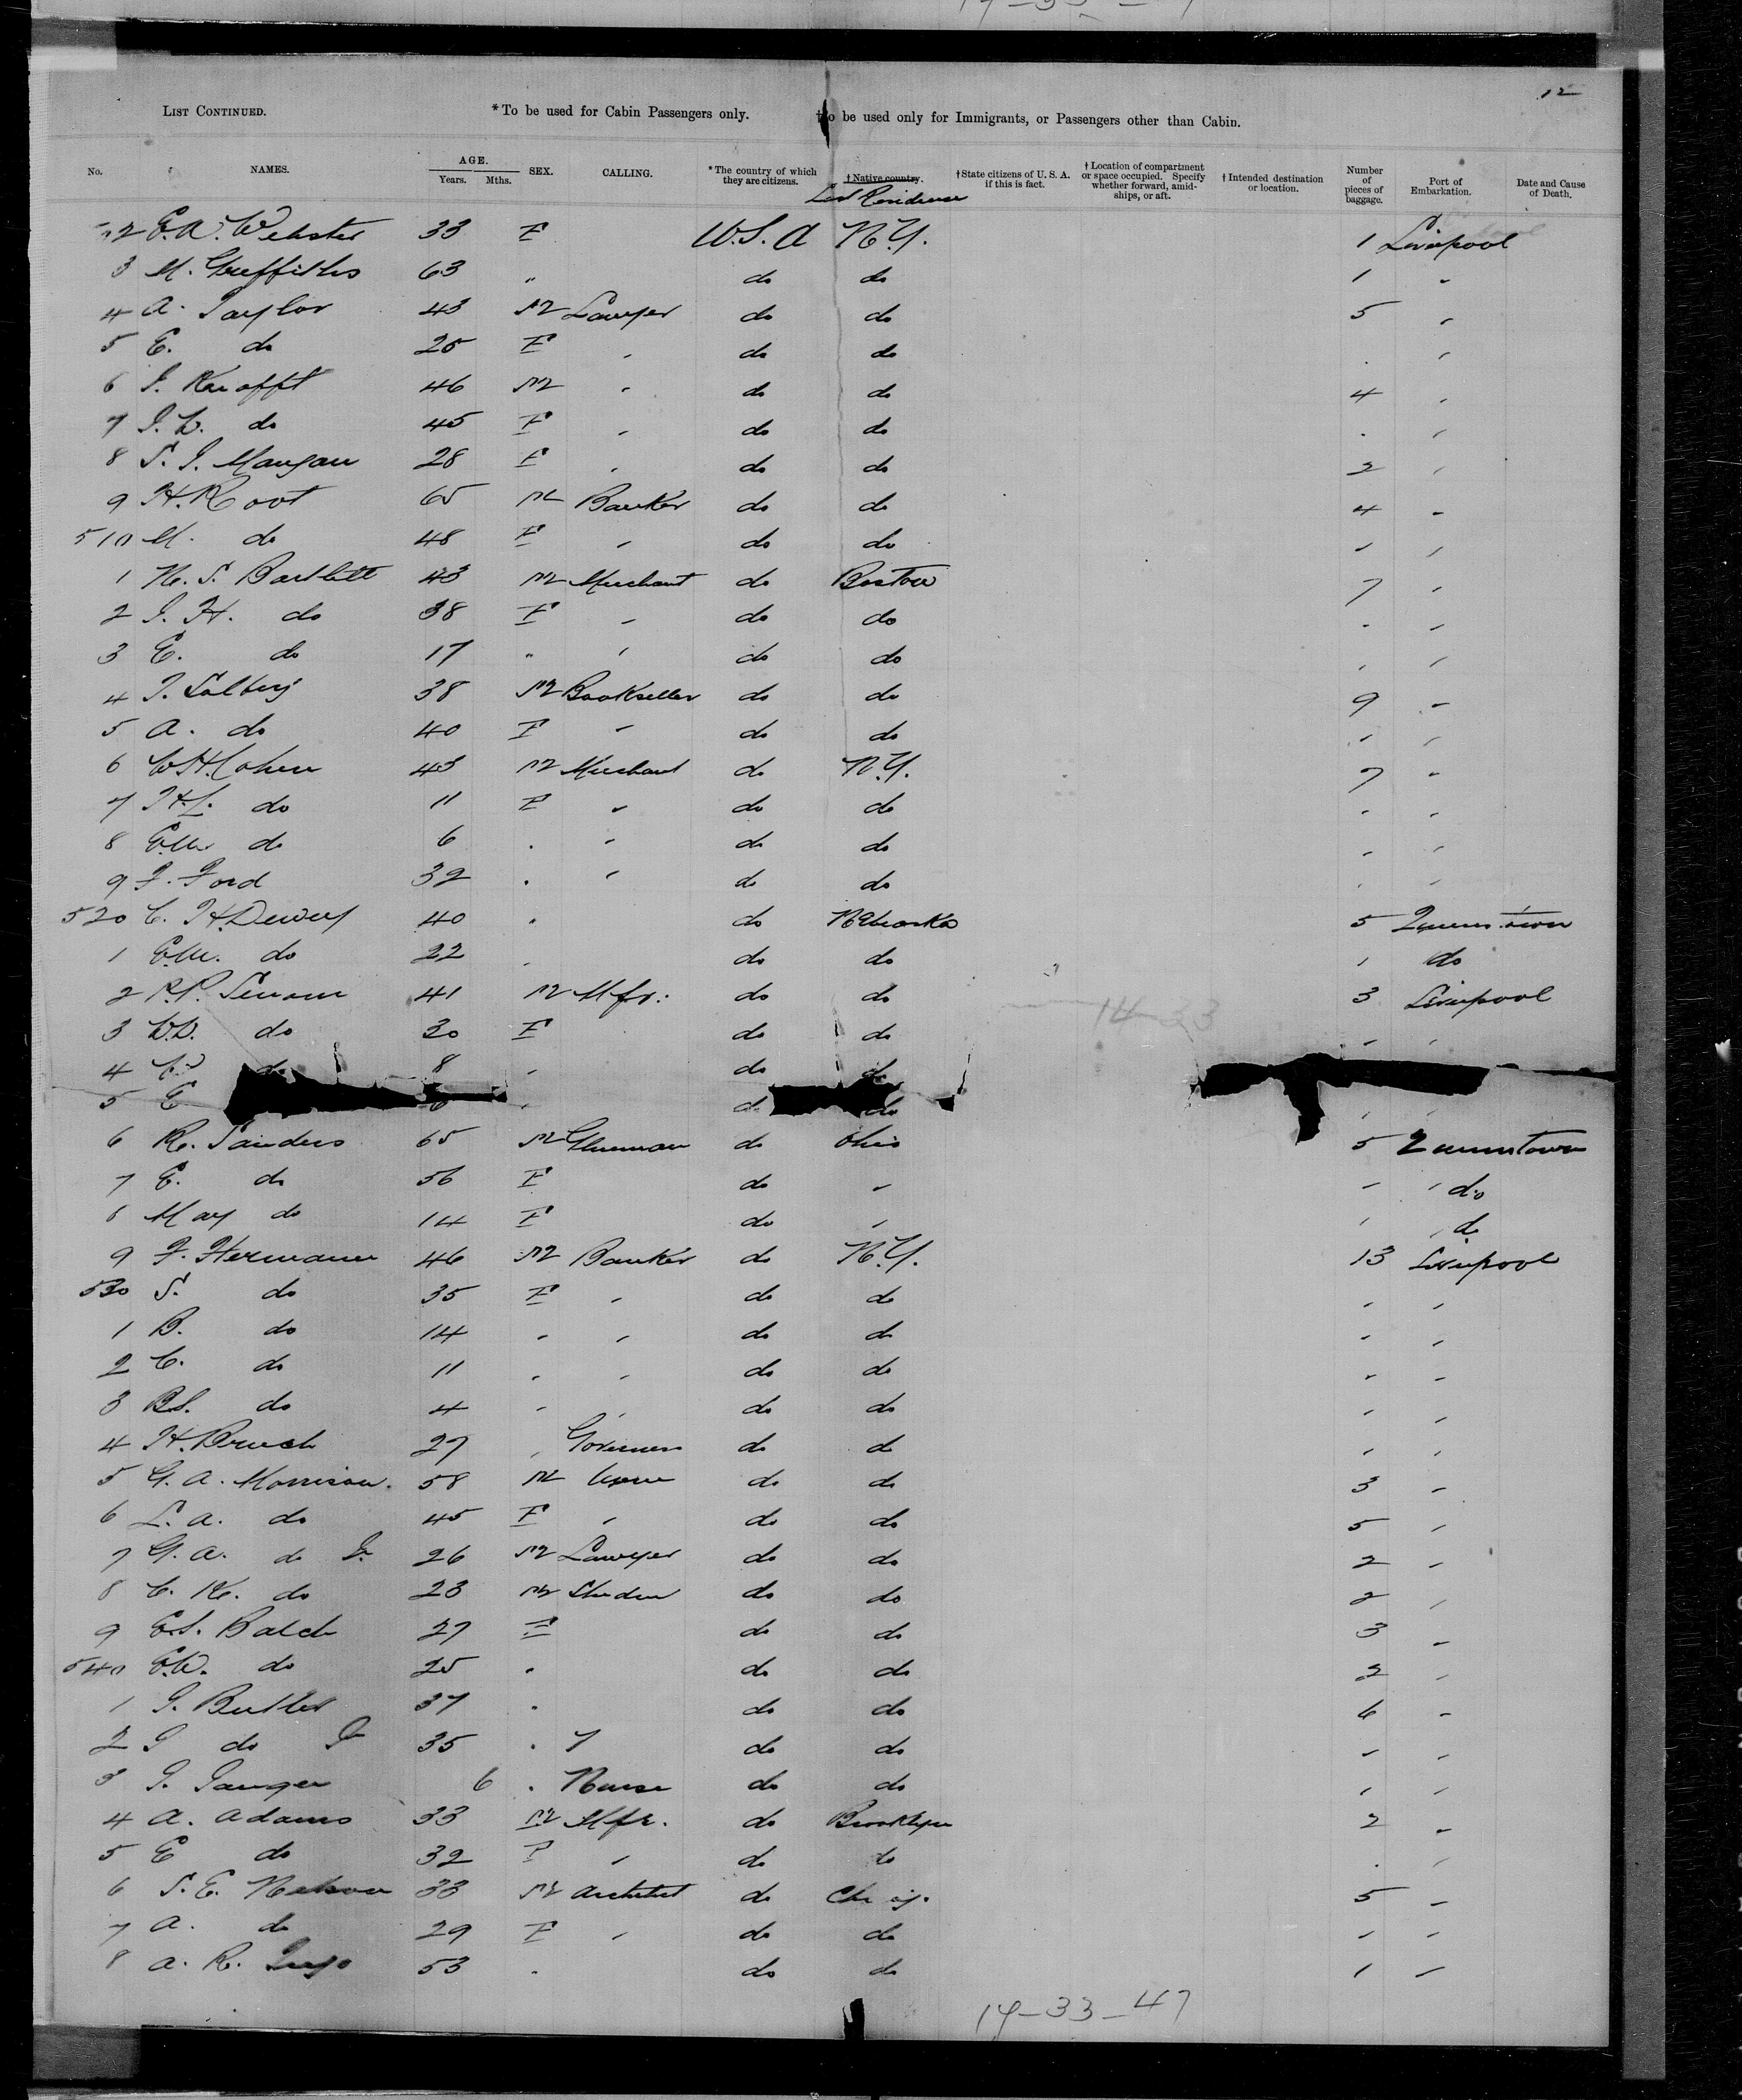 LIST CONTINUED. *To be used for Cabin Passengers only. †To be used only for Immigrants, or Passengers other than Cabin. 12
No. NAMES. AGE. Years. Mths. SEX. CALLING. *The country of which they are citizens. †Native country. Last Residence †State citizens of U. S. A. if this is fact. †Location of compartment or space occupied. Specify whether forward, amid-ships, or aft. †Intended destination or location. Number of pieces of baggage. Port of Embarkation. Date and Cause of Death.
2 E.A. Webster 33 F U.S.A N.Y. 1 Liverpool
3 M. Griffiths 63 " do do 1 "
4 A. Taylor 43 M Lawyer do do 5 "
5 E. do 25 F " do do " "
6 J. Knofft 46 M " do do 4 "
7 J.L. do 45 F " do do " "
8 S. J. Mangan 28 F " do do 2 "
9 H. Root 65 M Banker do do 4 "
510 M. do 48 F " do do " "
1 N. S. Bartlett 43 M Merchant do Boston 7 "
2 I. H. do 38 F " do do " "
3 E. do 17 " " do do " "
4 T. Solberg 38 M Bookseller do do 9 "
5 A. do 40 F " do do " "
6 W.H. Cohen 43 M Merchant do N.Y. 7 "
7 H.L. do 11 F " do do " "
8 E.M. do 6 " " do do " "
9 F. Ford 32 " " do do " "
520 C. H. Dewey 40 " do Nebraska 5 Queenstown
1 E.M. do 22 " do do 1 do
2 P.P. 41 M Mfr. do do 3 Liverpool
3 do 30 F do do " "
4 C do 8 " do do
5 E " do do " "
6 R. Sanders 65 M do Ohio 5 Queenstown
7 E. do 56 F do " " " do
8 May do 14 F do " " do
9 F. Hermann 46 M Banker do N.Y. 13 Liverpool
530 S. do 35 F " do do " "
1 B. do 14 " " do do " "
2 C. do 11 " " do do " "
3 B.S. do 4 " " do do " "
4 H. Bruch 27 " Governess do do " "
5 G. A. Morrison 58 M None do do 3 "
6 L. A. do 45 F " do do 5 "
7 G. A. do Jr 26 M Lawyer do do 2 "
8 C. K. do 23 M Student do do 2 "
9 E.S. Balch 27 F do do 3 "
540 E.W. do 25 " do do 2 "
1 G. Butler 37 " do do 6 "
2 G do Jr 35 " do do " "
3 6 " Nurse do do " "
4 A. Adams 33 M Mfr. do Brooklyn 2 "
5 E do 32 F " do do " "
6 S. E. Nelson 33 M Architect do 5 "
7 A. do 29 F " do do " "
8 A. R. 53 " do do 1 "
14-33
14-33-47